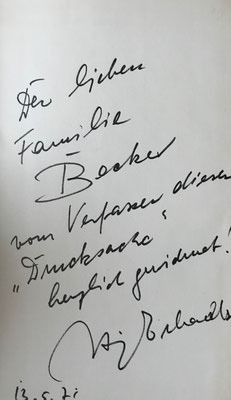 Der lieben
Familie
Becker
vom Verfasser dieser
„Drucksache“
herzlich gewidmet!
13.5.71